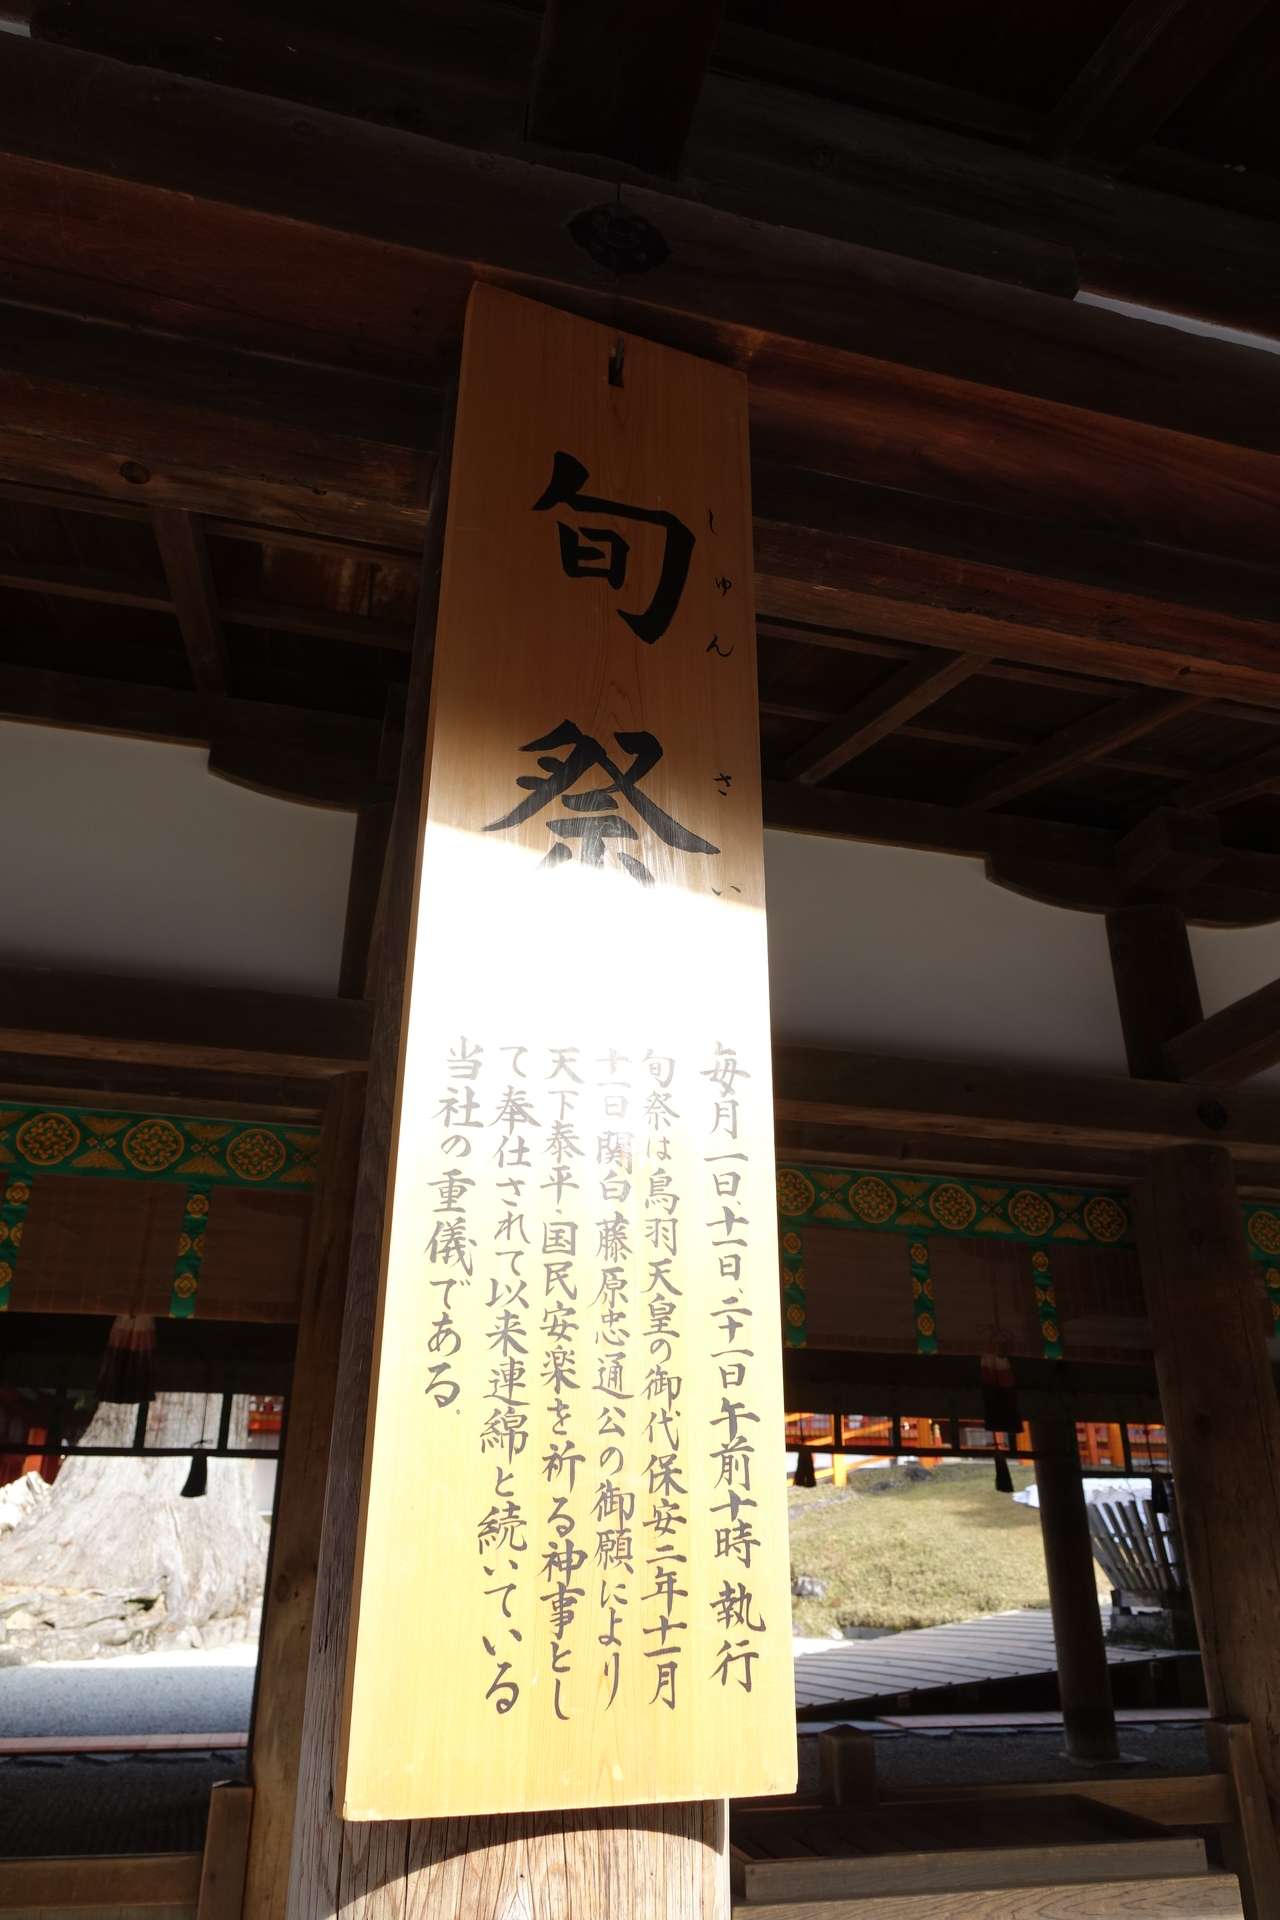 旬祭
しゅんさい
毎月一日、十一日、二十一日午前十時執行
旬祭は鳥羽天皇の御代保安二年十一月
十一日関白藤原忠通公の御願により
天下泰平、国民安楽を祈る神事とし
て奉仕されて以来連綿と続いている
当社の重儀である。